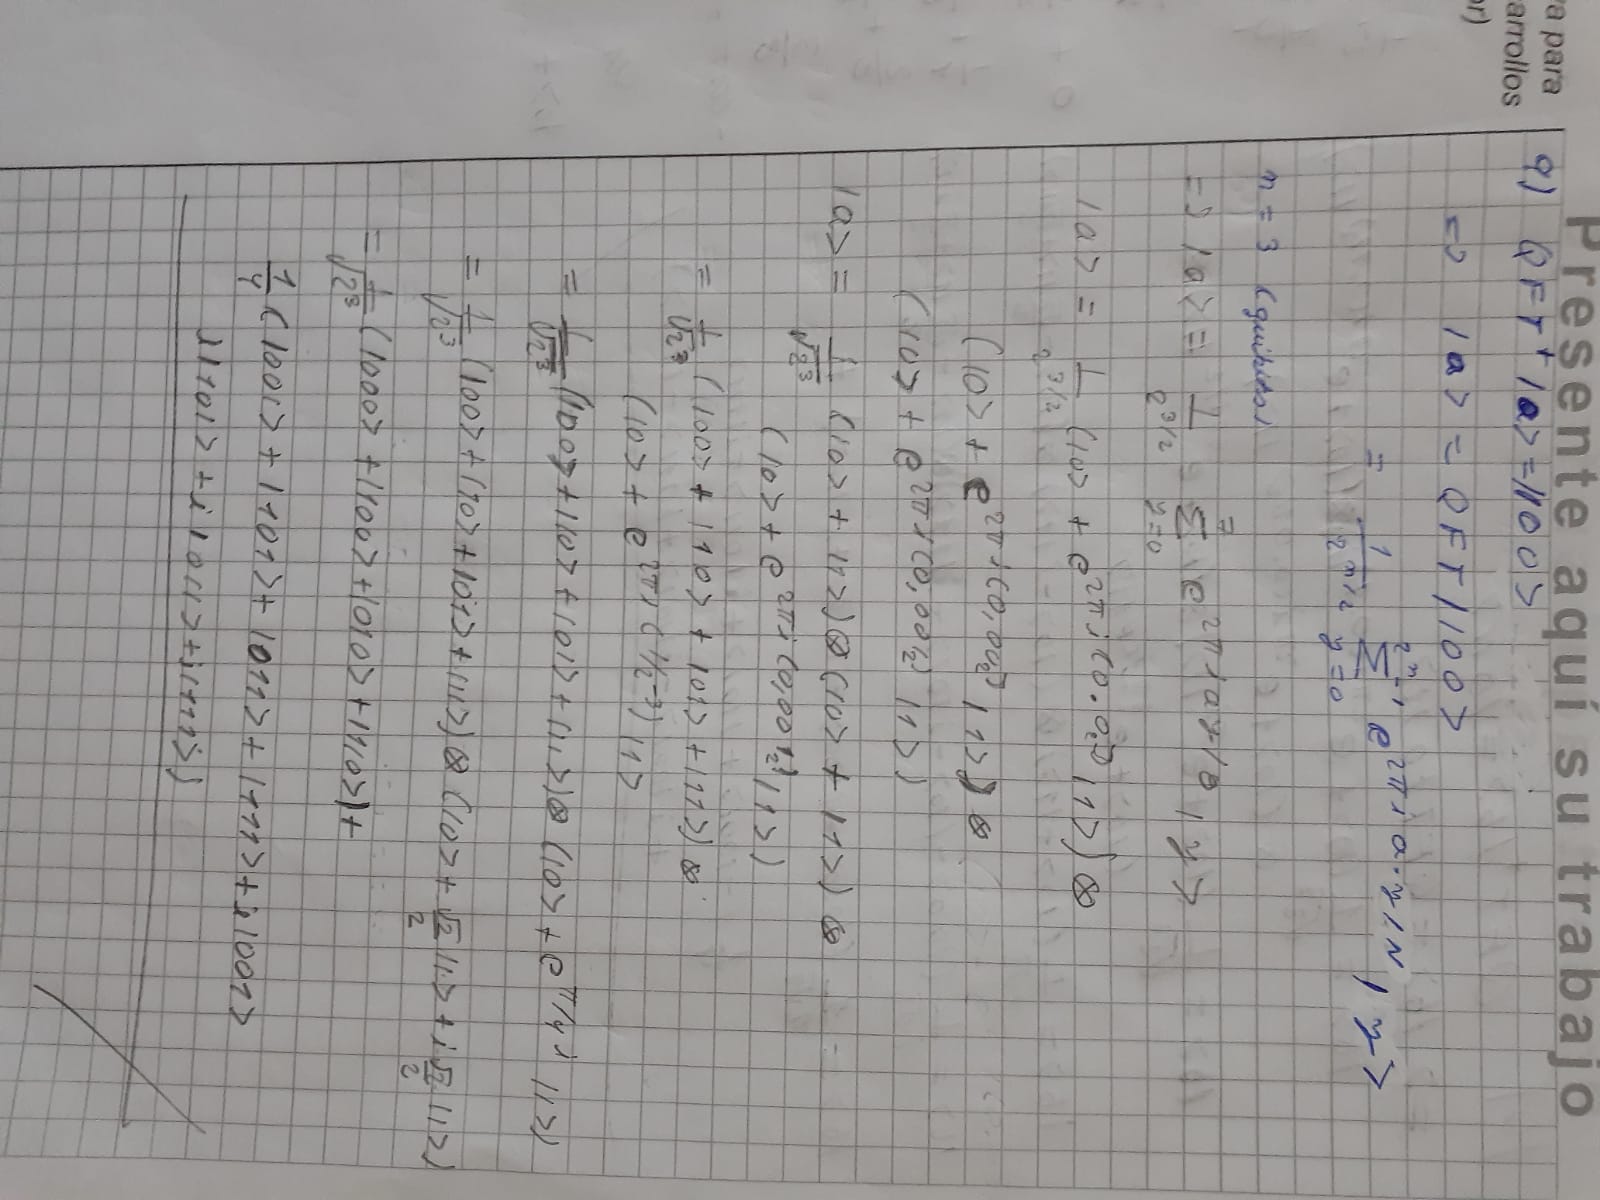 Presente aquí su trabajo
va para
arrollos
or)
a) QFT⁺|a>=|100>
=> |a> = QFT|100>
= 1/2^(n/2) Σ_{y=0}^{2^n-1} e^(2πi a·y/N) |y>
n = 3 (quibits)
=> |a> = 1/2^(3/2) Σ_{y=0}^{7} e^(2πi ay/8) |y>
|a> = 1/2^(3/2) (|0> + e^(2πi(0.0)₂) |1>) ⊗
(|0> + e^(2πi(0,00)₂) |1>) ⊗
(|0> + e^(2πi(0,001)₂) |1>)
|a> = 1/√2³ (|0> + |1>) ⊗ (|0> + |1>) ⊗
(|0> + e^(2πi(0,001)₂) |1>)
= 1/√2³ (|00> + |10> + |01> + |11>) ⊗
(|0> + e^(2πi(1/2^-3)) |1>
= 1/√2³ (|00> + |10> + |01> + |11>) ⊗ (|0> + e^(π/4 i) |1>)
= 1/√2³ (|00> + |10> + |01> + |11>) ⊗ (|0> + √2/2 |1> + i √2/2 |1>)
= 1/√2³ (|000> + |100> + |010> + |110>) +
1/4 (|001> + |101> + |011> + |111> + i|001>
i|101> + i|011> + i|111>)